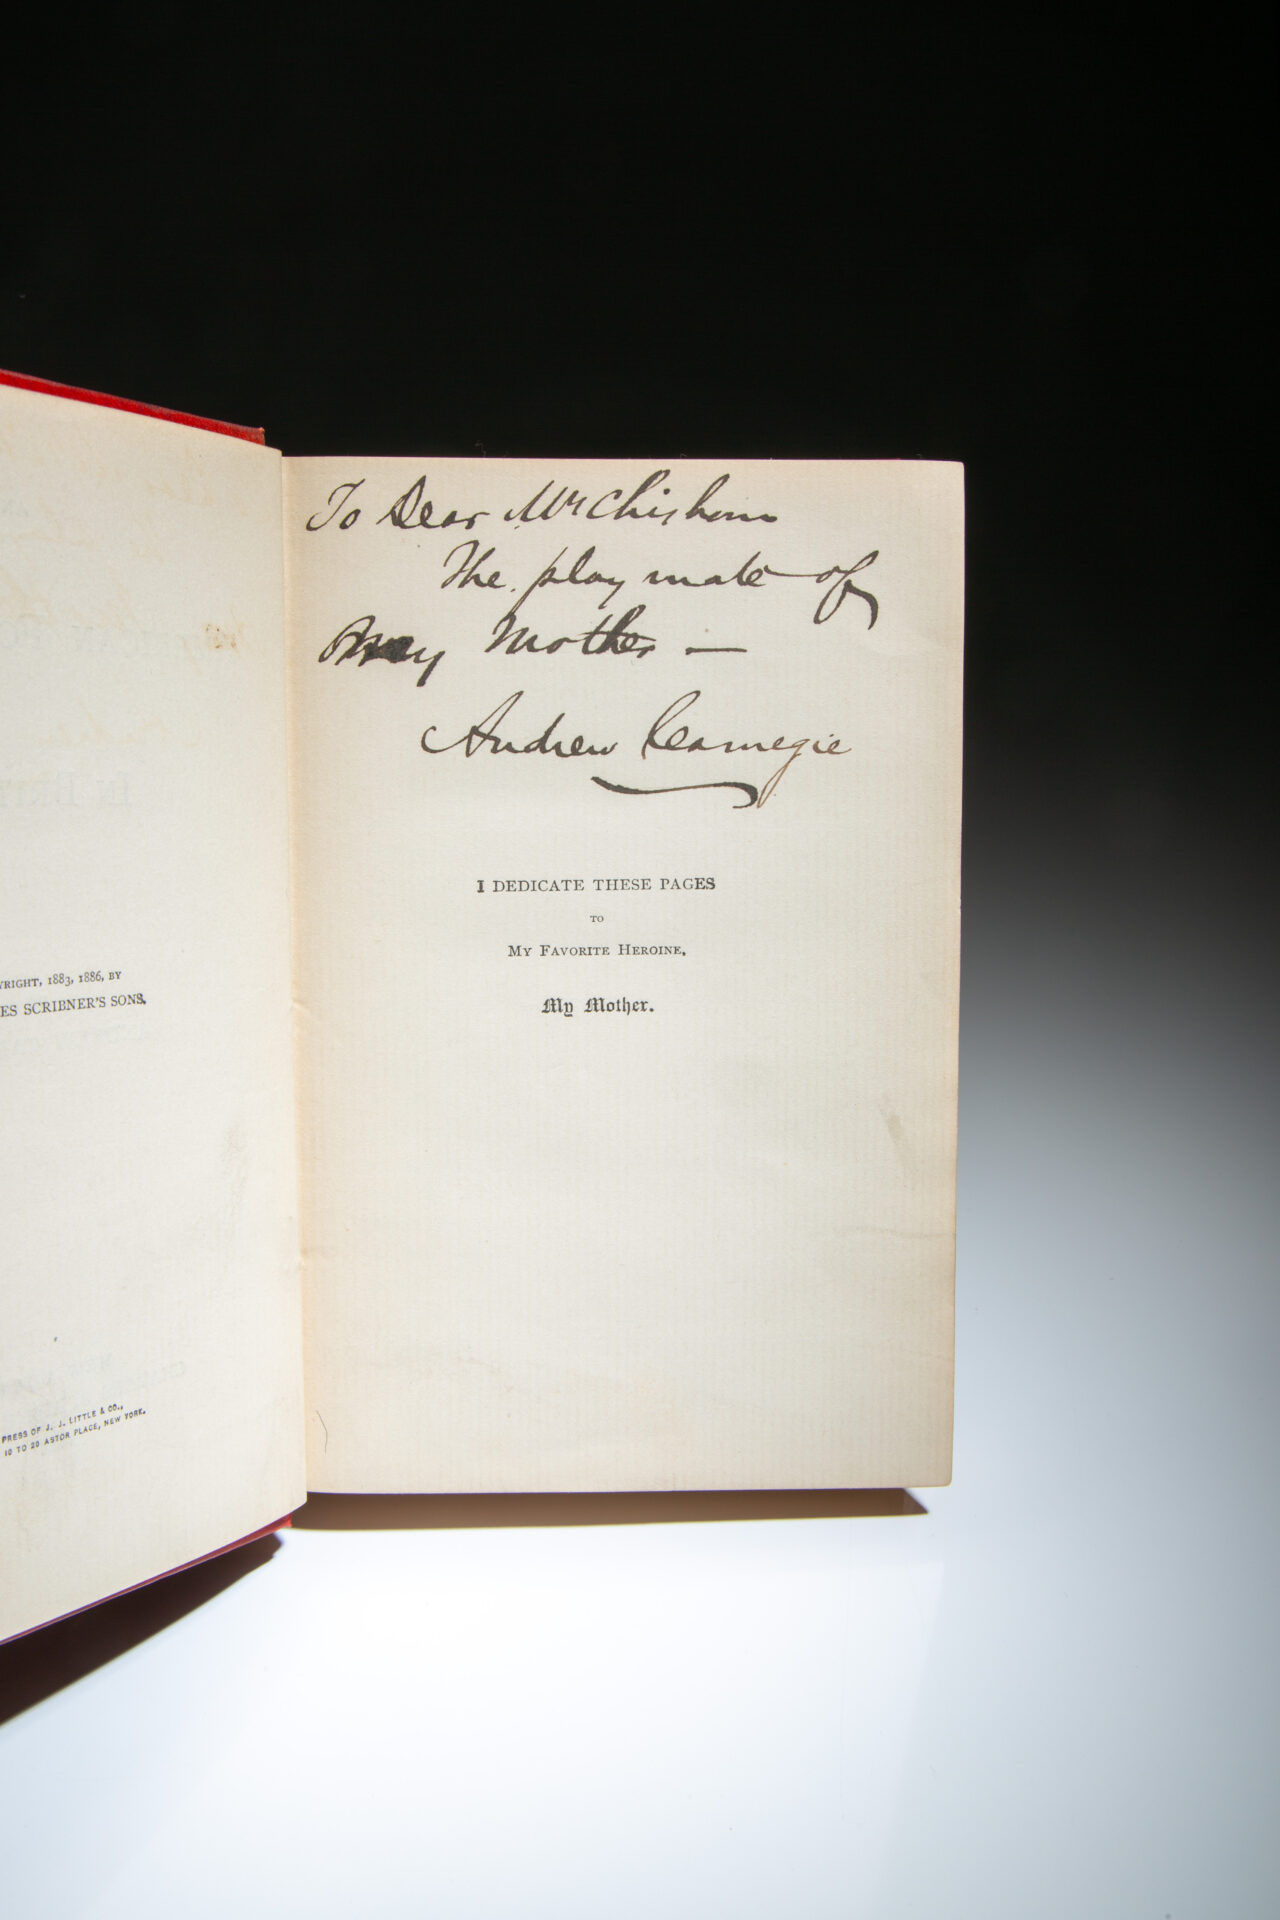 To Dear Mr Chisholm
The playmate of
My Mother —
Andrew Carnegie
I DEDICATE THESE PAGES
TO
MY FAVORITE HEROINE,
My Mother.
YRIGHT, 1883, 1886, BY
ES SCRIBNER'S SONS.
PRESS OF J. J. LITTLE & CO.,
10 TO 20 ASTOR PLACE, NEW YORK.